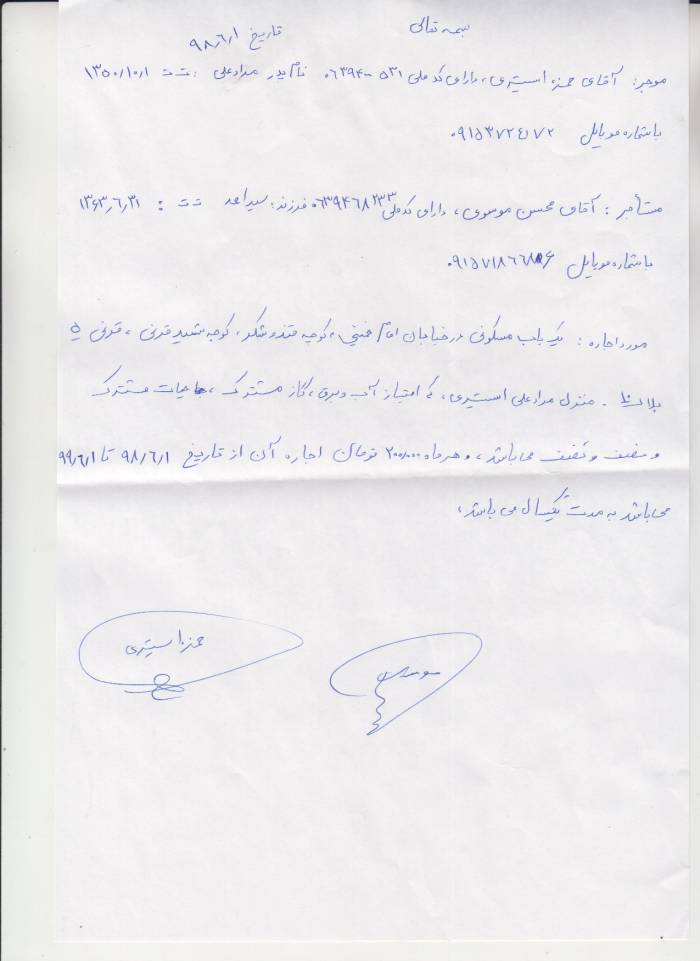 بسمه تعالی
تاریخ ۹۸/۶/۱
موجر: آقای حمزه استیری، دارای کد ملی ۰۶۳۹۴۰۰۵۳۱ نام پدر مرادعلی ت ت: ۱۳۵۰/۱۰/۱
با شماره موبایل
مستأجر: آقای محسن موسوی، دارای کد ملی ۰۶۳۹۴۶۸۲۳۳ فرزند: سیداحمد ت ت: ۱۳۶۳/۶/۳۱
با شماره موبایل
مورد اجاره: یک باب مسکونی در خیابان امام خمینی، کوچه قندوشکر، کوچه شهید قرنی، قرنی ۵
پلاک ۱۰. منزل مرادعلی استیری، که امتیاز آب و برق، گاز مشترک، حیات مشترک
و می باشد، و هر ماه ۲۰۰،۰۰۰ تومان اجاره آن از تاریخ ۹۸/۶/۱ تا ۹۹/۶/۱
می باشد به مدت یکسال می باشد،
حمزه استیری
موسوی